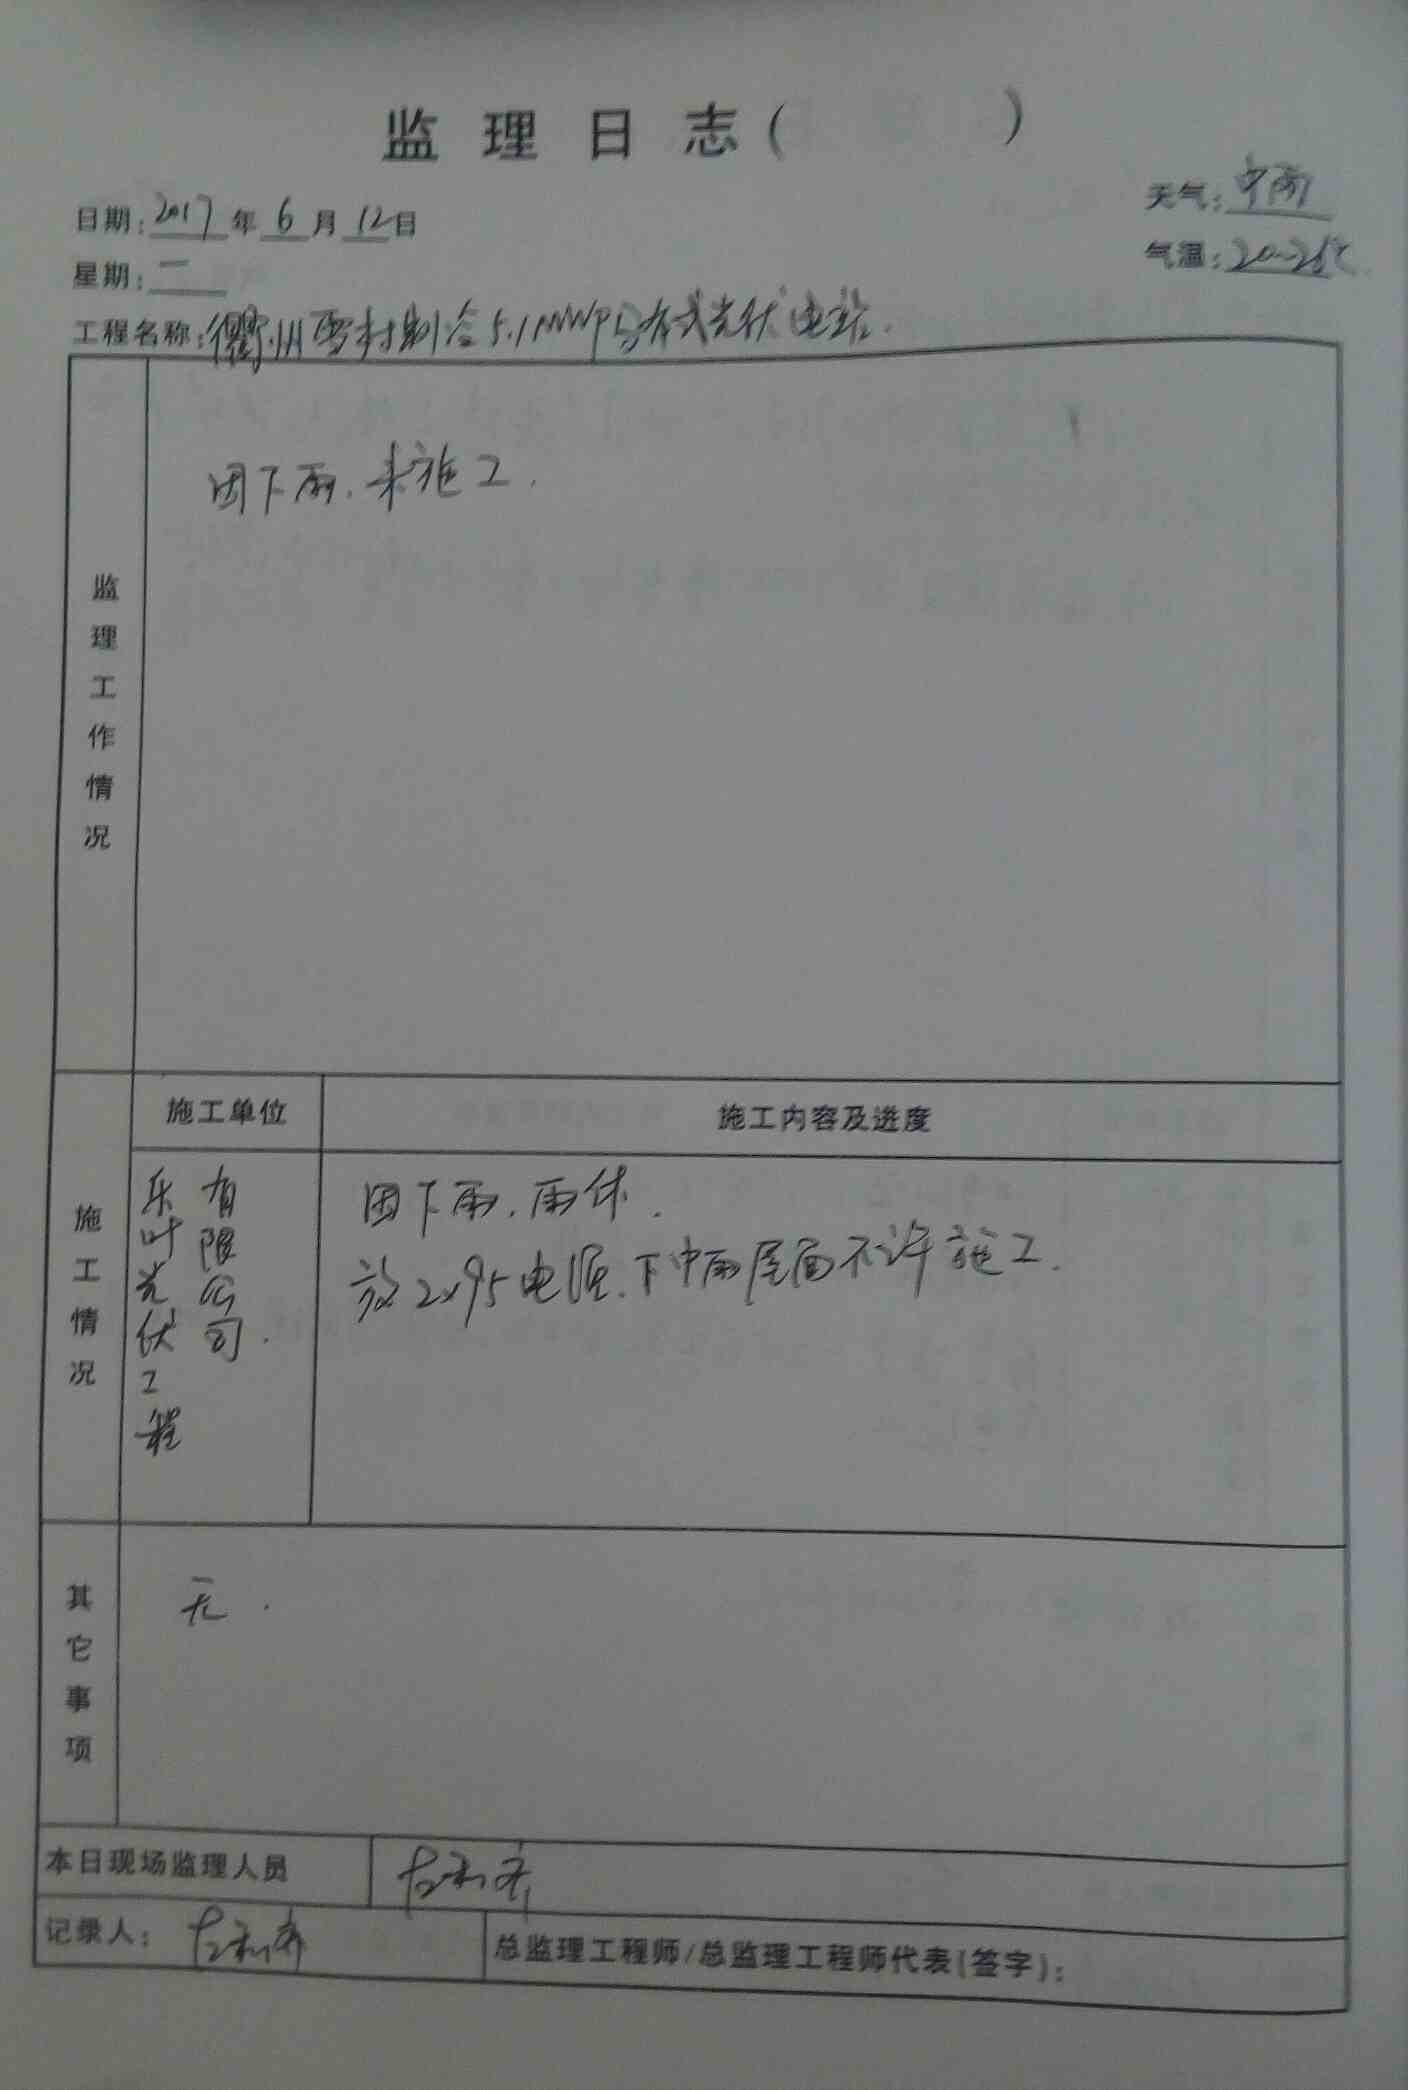 监理日志(　　　)
日期:2017年6月12日
天气:中雨
星期:二
气温:20-26℃
工程名称:衢州雪村制冷5.1MWP分布式光伏电站.
监理工作情况
因下雨.未施工.
施工情况
施工单位
施工内容及进度
乐叶光伏工程
有限公司.
因下雨.雨休.
放2x95电源.下中雨屋面不许施工.
其它事项
无.
本日现场监理人员
记录人:
总监理工程师/总监理工程师代表(签字):